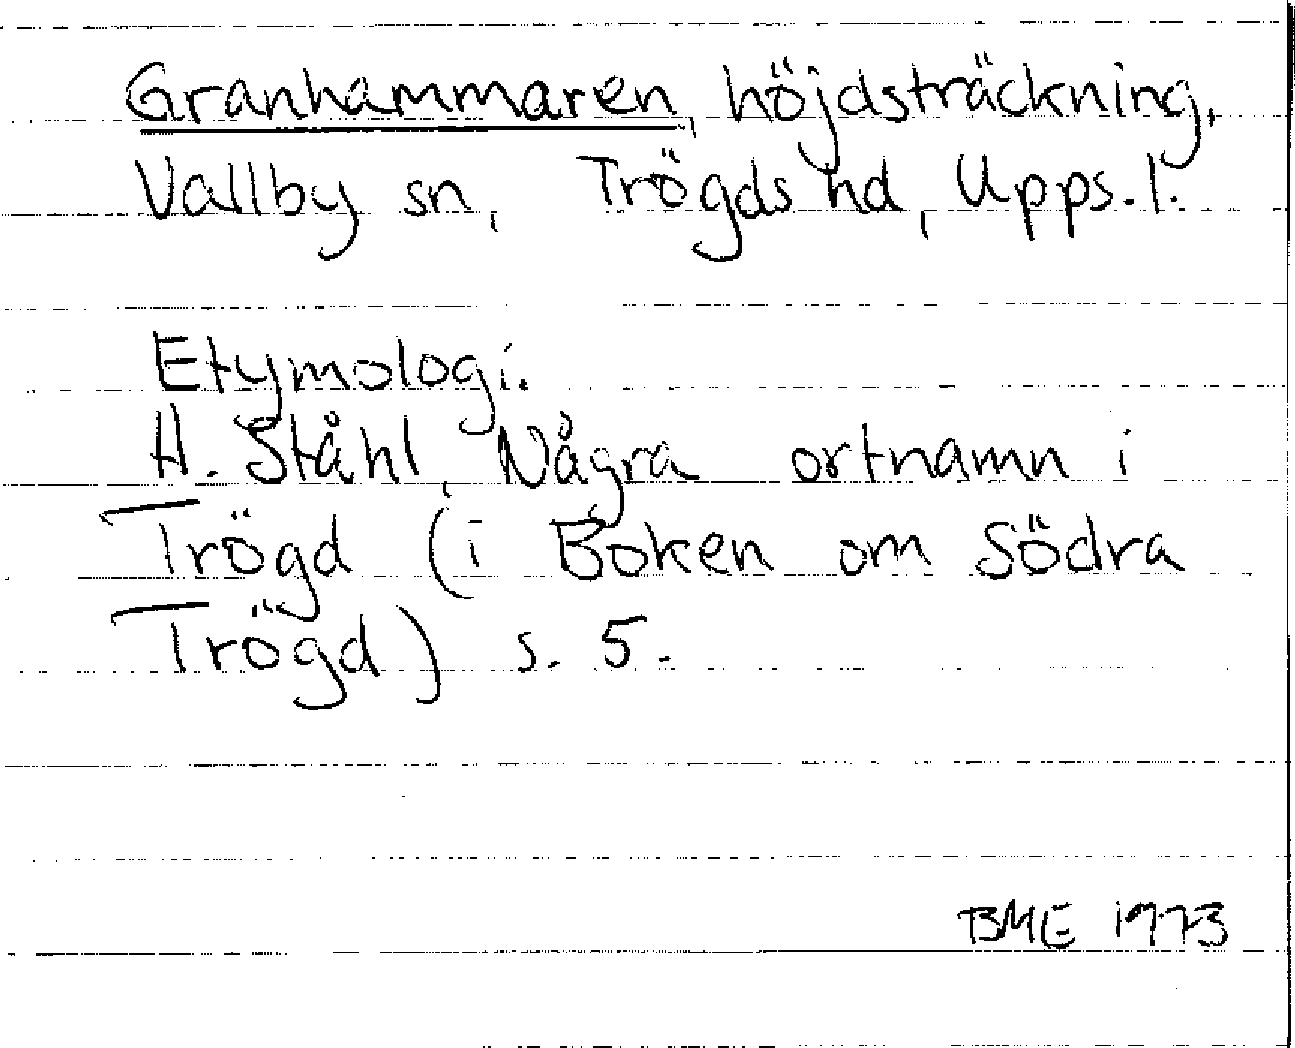 Granhammaren, höjdsträckning,
Vallby sn, Trögds hd, Upps. l.
Etymologi.
H. Ståhl, Några ortnamn i
Trögd (i Boken om Södra
Trögd) s. 5.
BME 1973